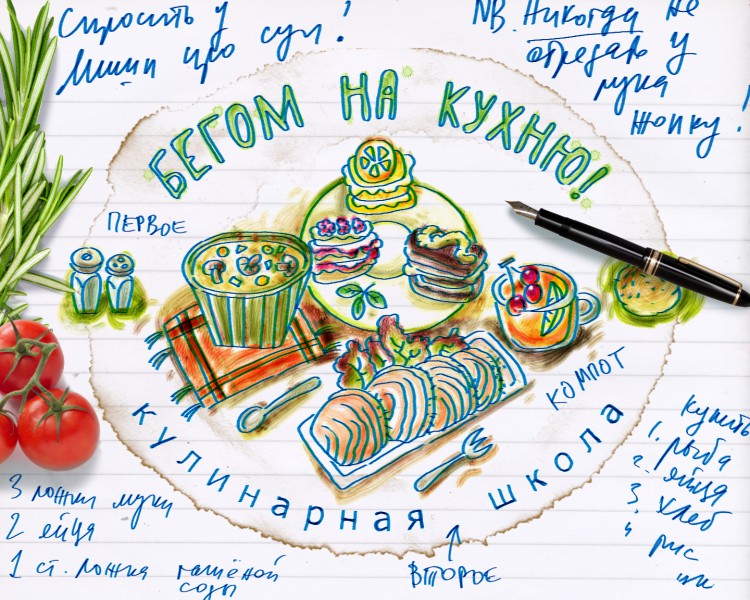 Спросить у
Миши про суп!
NB. Никогда не
отрезать у
лука
жопку!
БЕГОМ НА КУХНЮ!
ПЕРВОЕ
КОМПОТ
кулинарная школа
ВТОРОЕ
3 ложки муки
2 яйца
1 ст. ложка гашёной
соды
купить
1. рыба
2. яйца
3. хлеб
4 рис